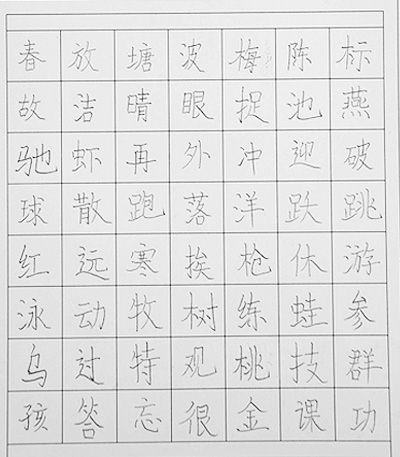 春放塘波梅陈标
故洁晴眼捉池燕
驰虾再外冲迎破
球散跑落洋跃跳
红远寒挨枪休游
泳动牧树练蛙参
乌过特观桃技群
孩答忘很金课功